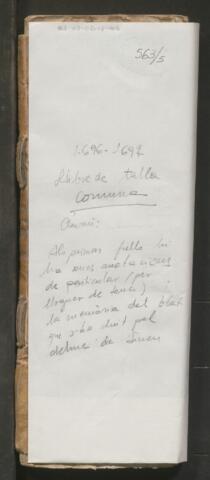 563/5
1.696-1697
Llibre de talla
Comuna
Als primers fulls hi
ha unes anotacions
de particular (per
lloguer de terres) i
la memòria del blat
que s'ha duit pel
delme de Sineu